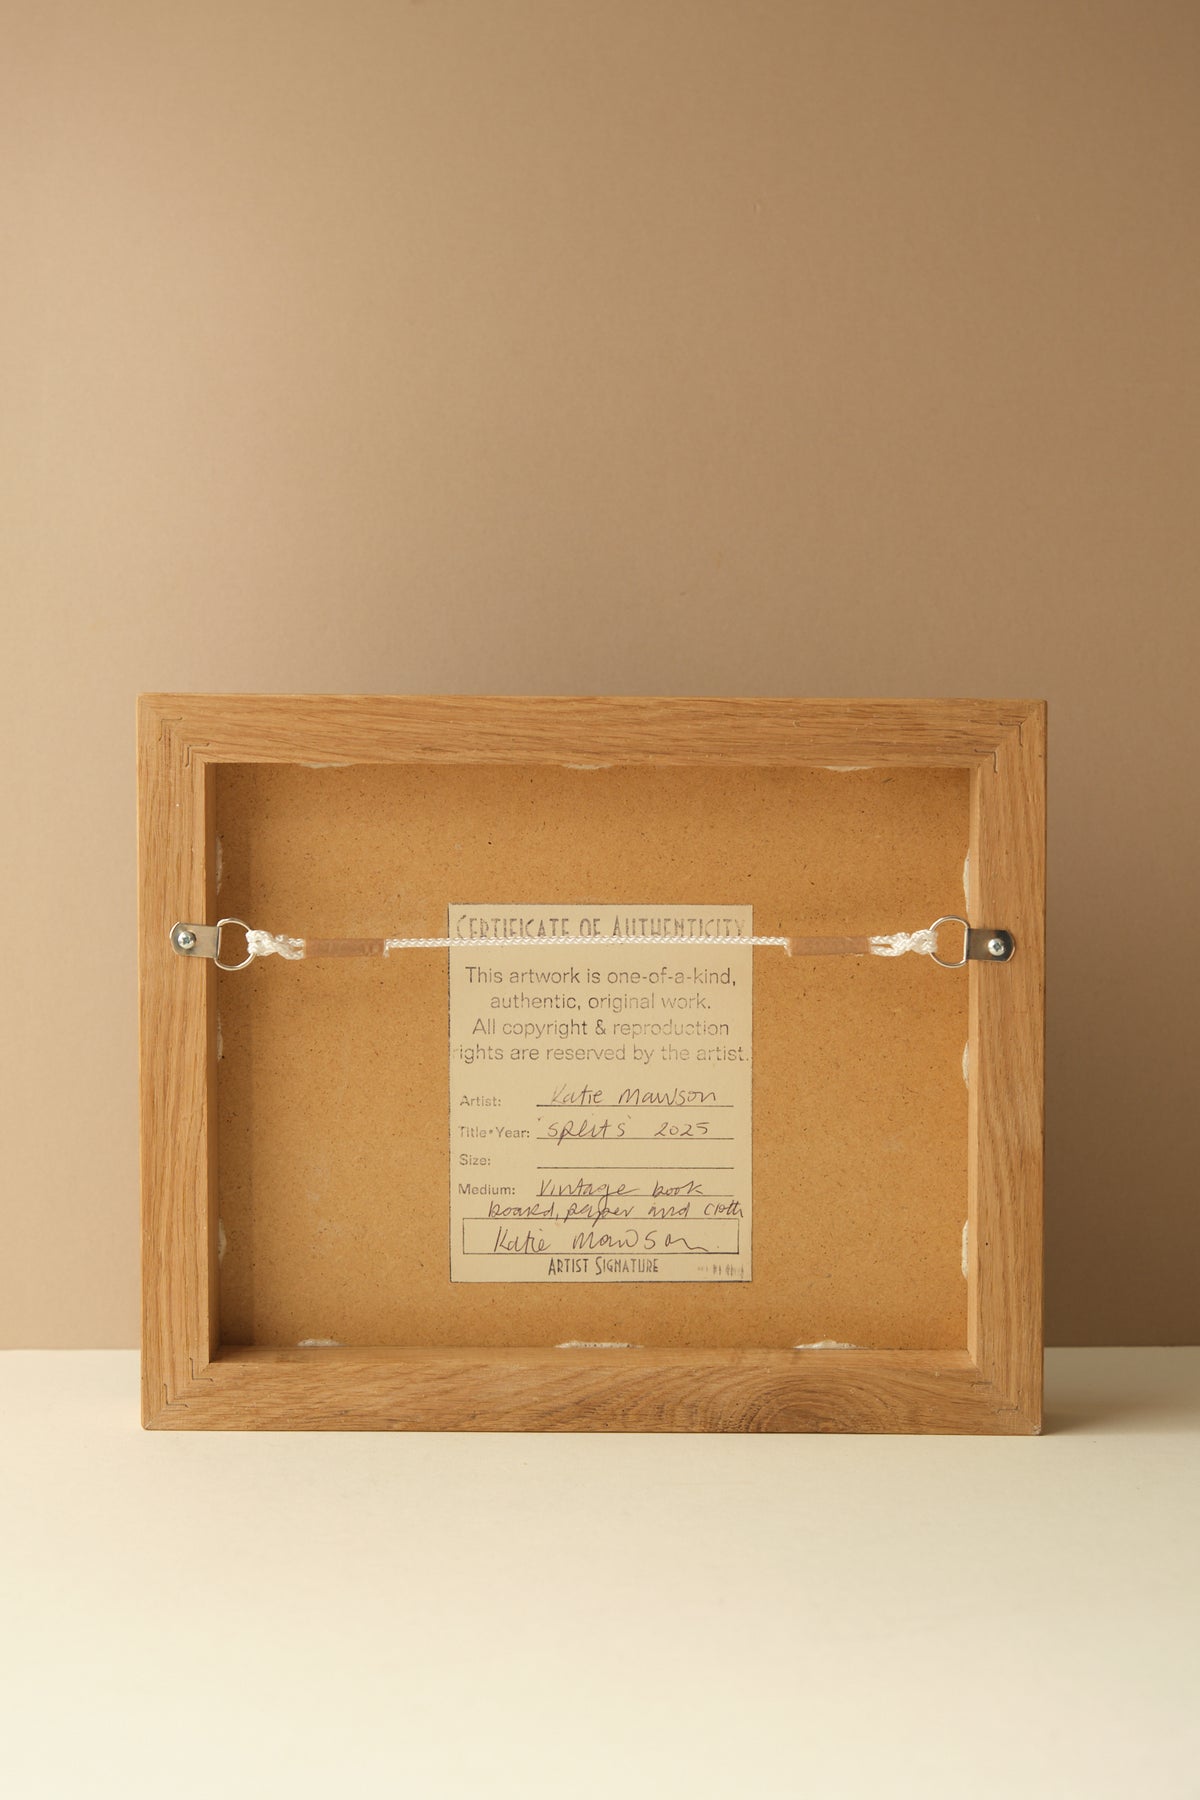 CERTIFICATE OF AUTHENTICITY
This artwork is one-of-a-kind,
authentic, original work.
All copyright & reproduction
rights are reserved by the artist.
Artist: Katie Mawson
Title•Year: 'Splits' 2025
Size:
Medium: Vintage book
board, paper and cloth
Katie Mawson
ARTIST SIGNATURE